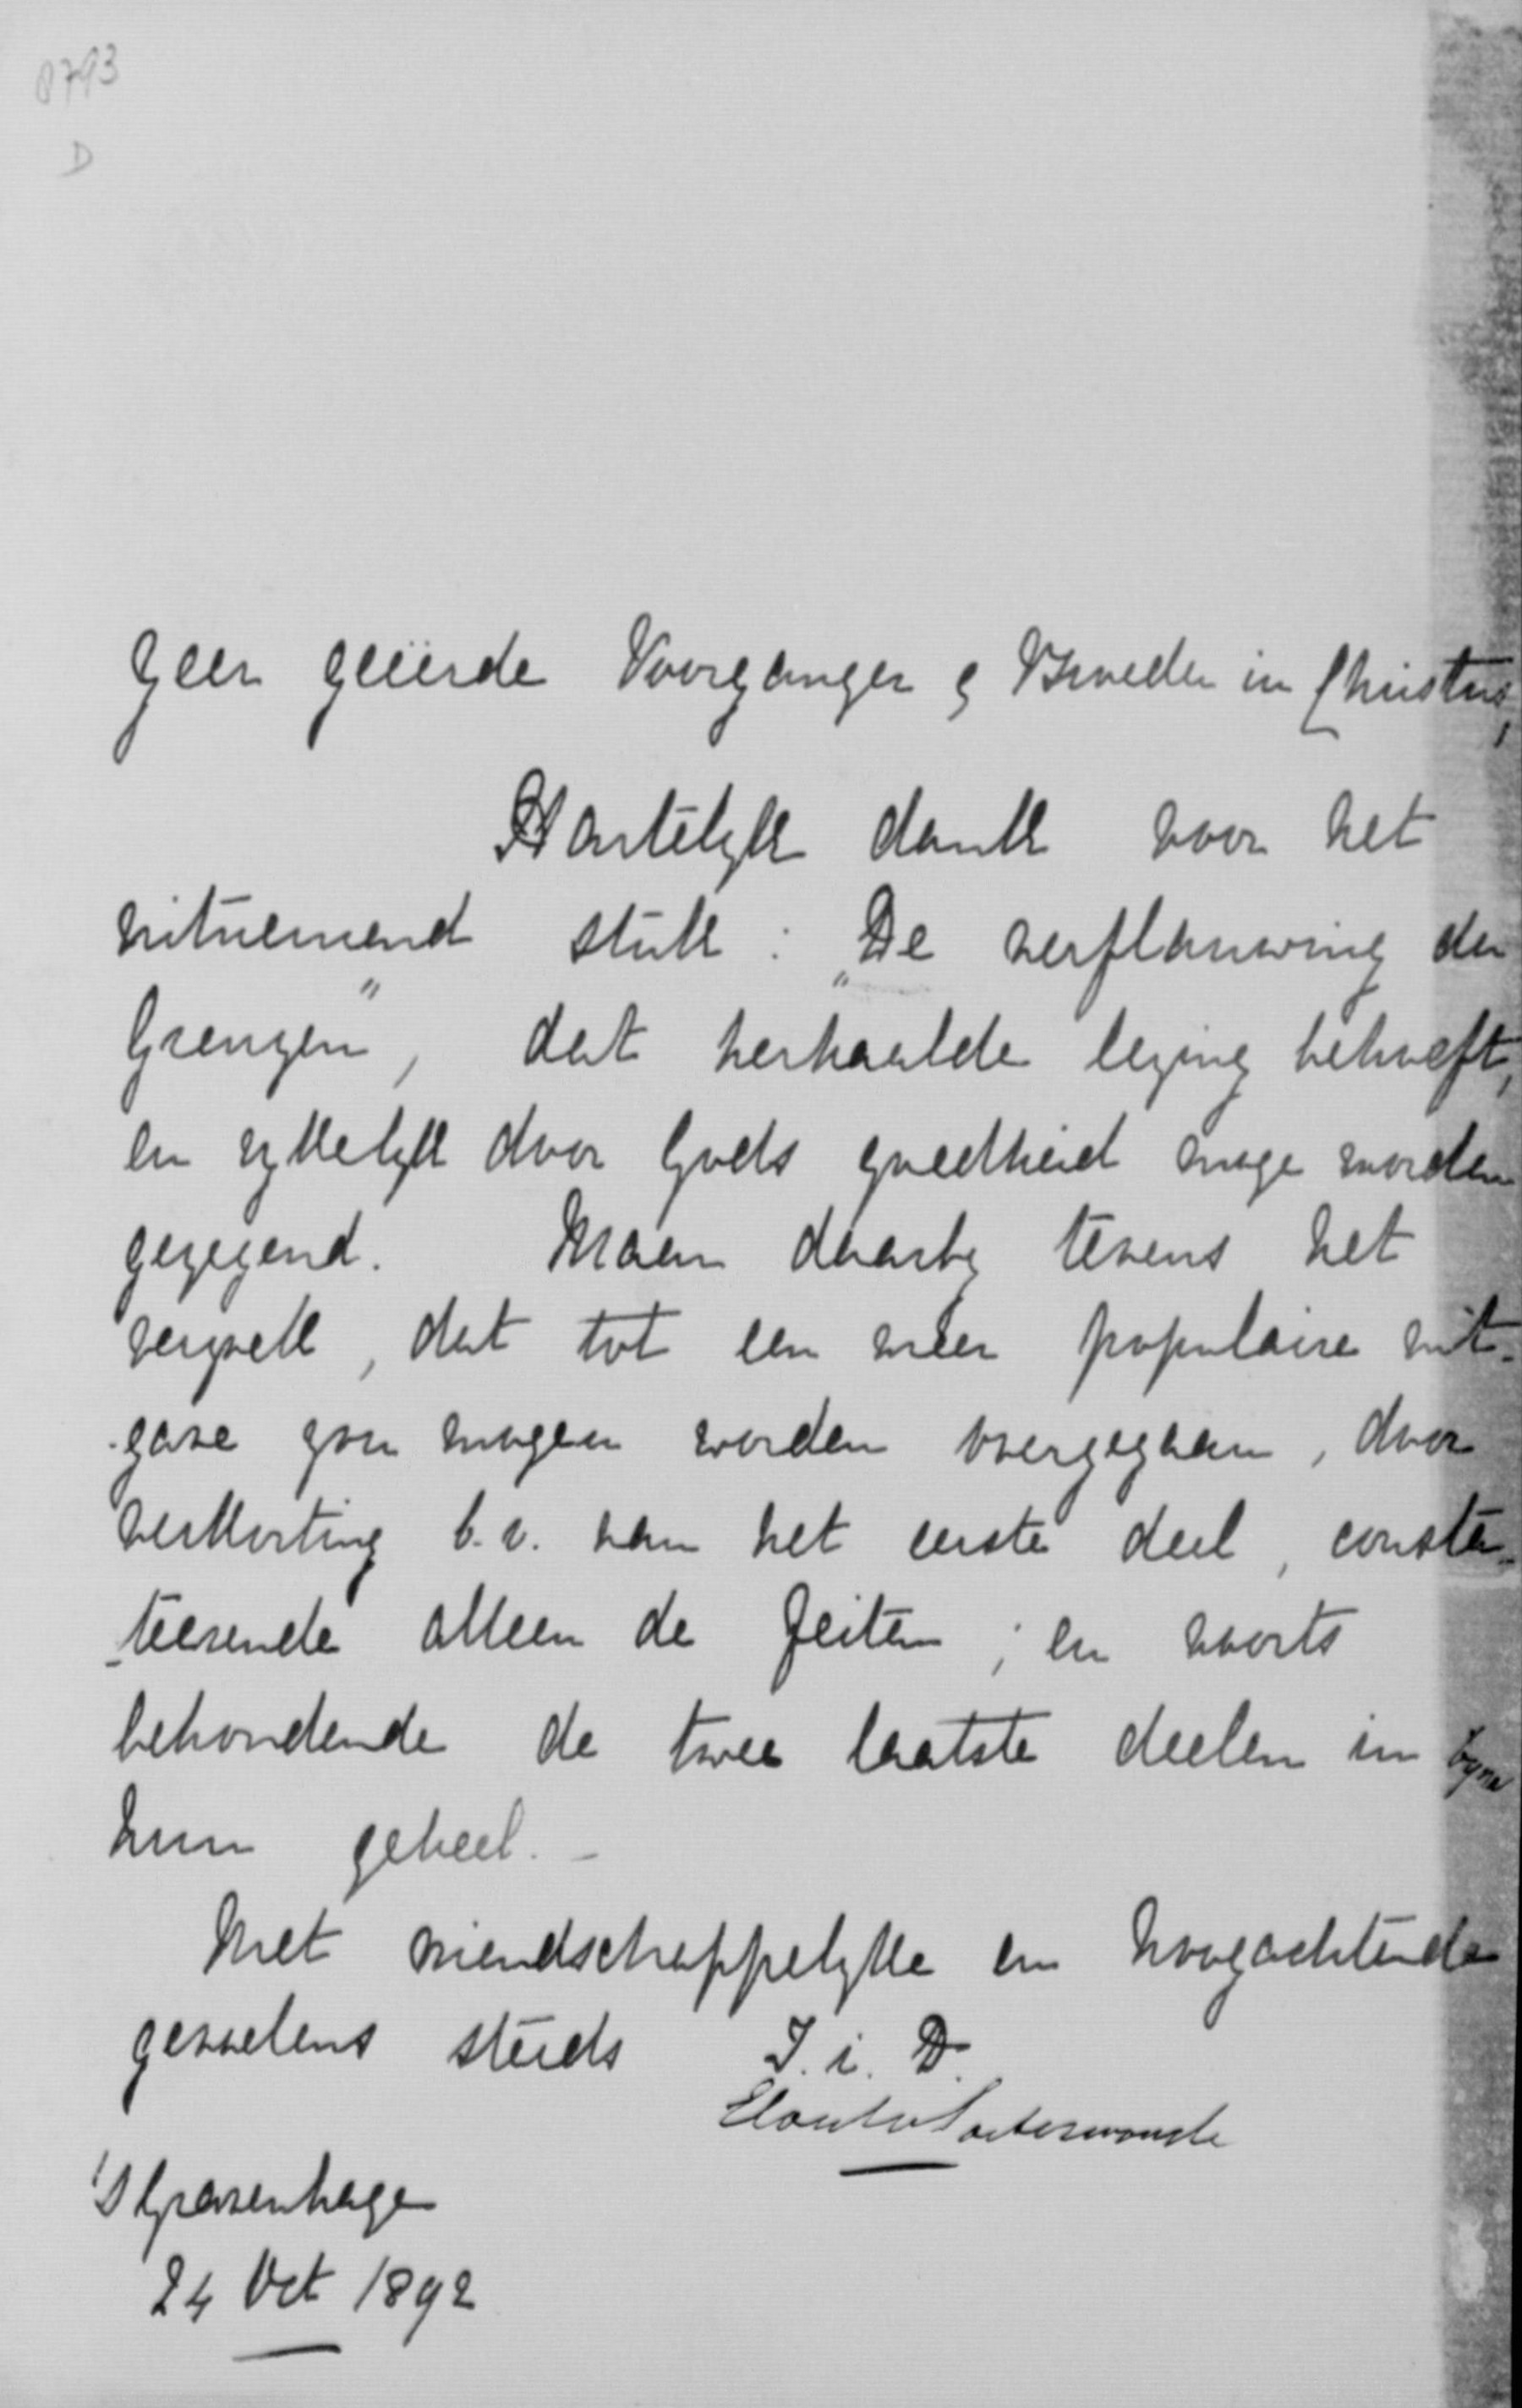 8793
D
Zeer geëerde Voorganger & Broeder in Christus,
Hartelyk dank voor het
uitnemend stuk : „De verflauwing der
Grenzen", dat herhaalde lezing behoeft,
en rykelyk door Gods goedheid moge worden
gezegend. Maar daarby tevens het
verzoek, dat tot een meer populaire uit-
-gave zou mogen worden overgegaan, door
verkorting b.v. van het eerste deel, consta-
-teerende alleen de feiten ; en voorts
behoudende de twee laatste deelen in byna
hun geheel. -
Met vriendschappelyke en hoogachtende
gevoelens steeds T. i. D.
Elout v Soeterwoude
's Gravenhage
24 Oct 1892